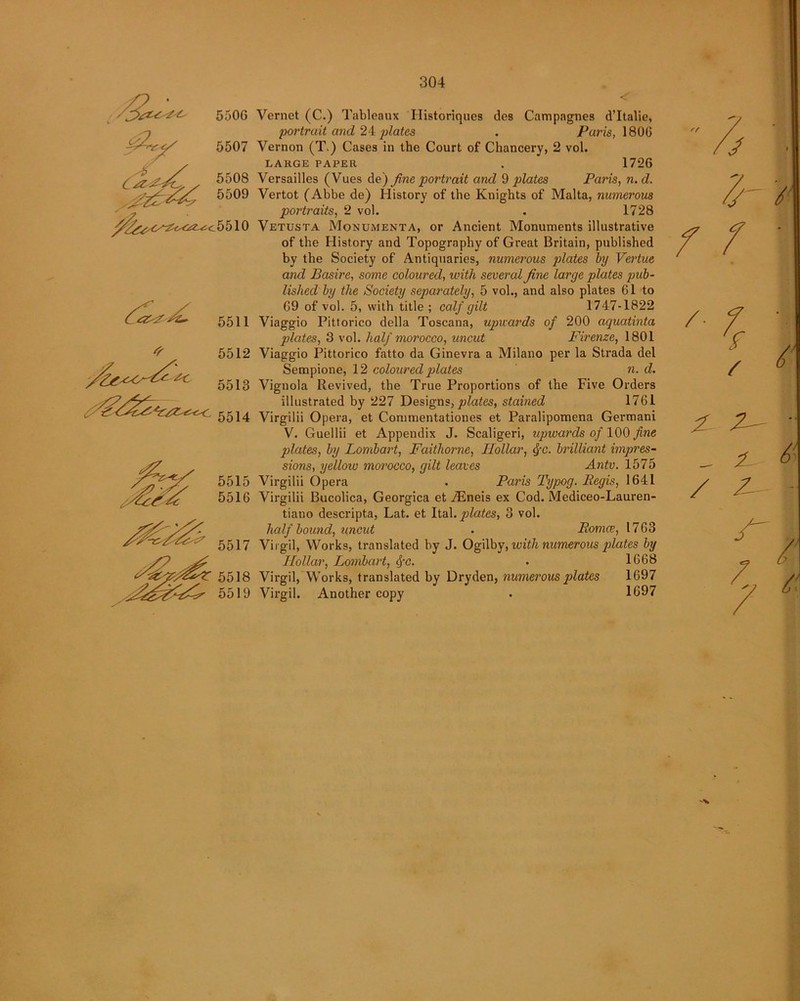 304
5506 Vernet (C.) Tableaux Historiques des Campagnes d'Italie,
portrait and 24 plates . Paris, 1806
5507 Vernon (T.) Cases in the Court of Chancery, 2 vol.
LARGE PAPER . 1726
5508 Versailles (Vues de) fine portrait and 9 plates Paris, n. d.
5509 Vertot (Abbe de) History of the Knights of Malta, numerous
portraits, 2 vol. . 1728
5510 VETUSTA MONUMENTA, or Ancient Monuments illustrative
of the History and Topography of Great Britain, published
by the Society of Antiquaries, numerous plates by Vertue
and Basire, some coloured, with several fine large plates pub-
lished by the Society separately, 5 vol., and also plates 61 to
69 of vol. 5, with title ; calf gilt 1747-1822
5511 Viaggio Pittorico della Toscana, upwards of 200 aquatinta
plates, 3 vol. half morocco, uncut Firenze, 1801
5512 Viaggio Pittorico fatto da Ginevra a Milano per la Strada del
Sempione, 12 coloured plates n. d.
5513 Vignola Revived, the True Proportions of the Five Orders
illustrated by 227 Designs, plates, stained 1761
5514 Virgilii Opera, et Commentationes et Paralipomena Germani
V. Guellii et Appendix J. Scaligeri, upwards of 100 fine
plates, by Lombart, Faithorne, Hollar, &c. brilliant impres-
sions, yellow morocco, gilt leaves Antv. 1575
5515 Virgilii Opera . Paris Typog. Regis, 1641
5516 Virgilii Bucolica, Georgica et Æneis ex Cod. Mediceo-Lauren-
tiano descripta, Lat. et Ital. plates, 3 vol.
half bound, uncut . Romæ, 1763
5517 Virgil, Works, translated by J. Ogilby, with numerous plates by
Hollar, Lombart, &c. . 1668
5518 Virgil, Works, translated by Dryden, numerous plates 1697
5519 Virgil. Another copy . 1697